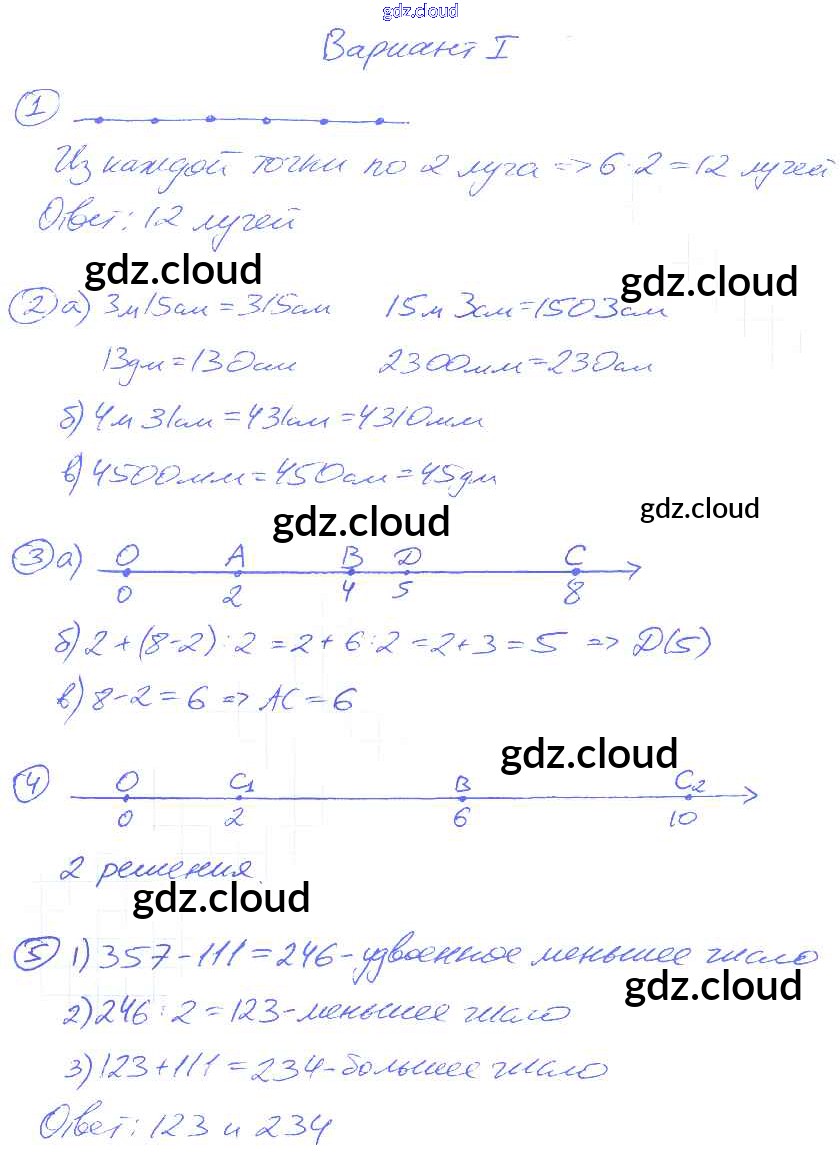 gdz.cloud
Вариант I
1
Из каждой точки по 2 луча => 6·2=12 лучей
Ответ: 12 лучей
gdz.cloud
gdz.cloud
2 а) 3м15см=315см 15м 3см=1503см
13дм=130см 2300мм=230см
б) 4м 31см=431см=4310мм
в) 4500мм=450см=45дм
gdz.cloud
gdz.cloud
3 а) O A B D C
0 2 4 5 8
б) 2+(8-2):2=2+6:2=2+3=5 => D(5)
в) 8-2=6 => AC=6
gdz.cloud
4 O C₁ B C₂
0 2 6 10
2 решения.
gdz.cloud
5 1) 357-111=246-удвоенное меньшее число
gdz.cloud
2) 246:2=123-меньшее число
3) 123+111=234-большее число
Ответ: 123 и 234